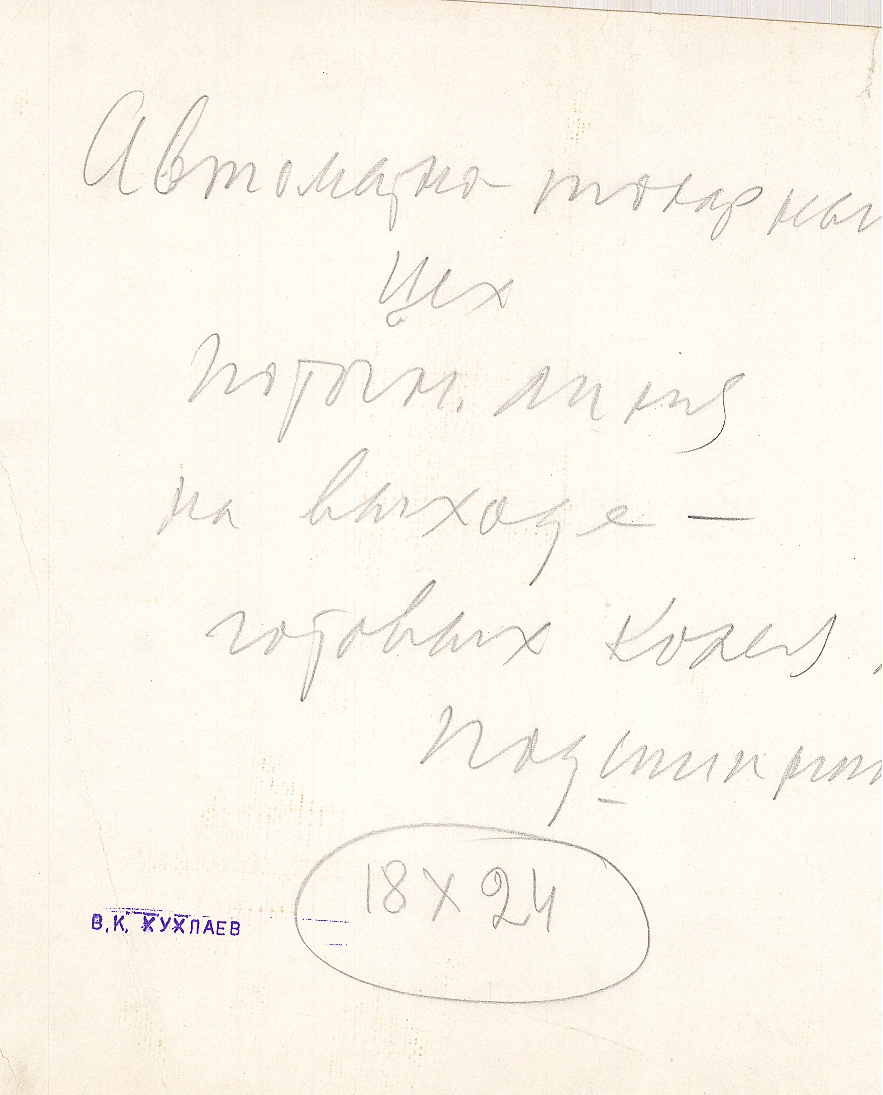 Автоматно-токарный
цех
поточн. линия
на выходе —
готовых колец
подшипник
18 х 24
В.К. ХУХЛАЕВ